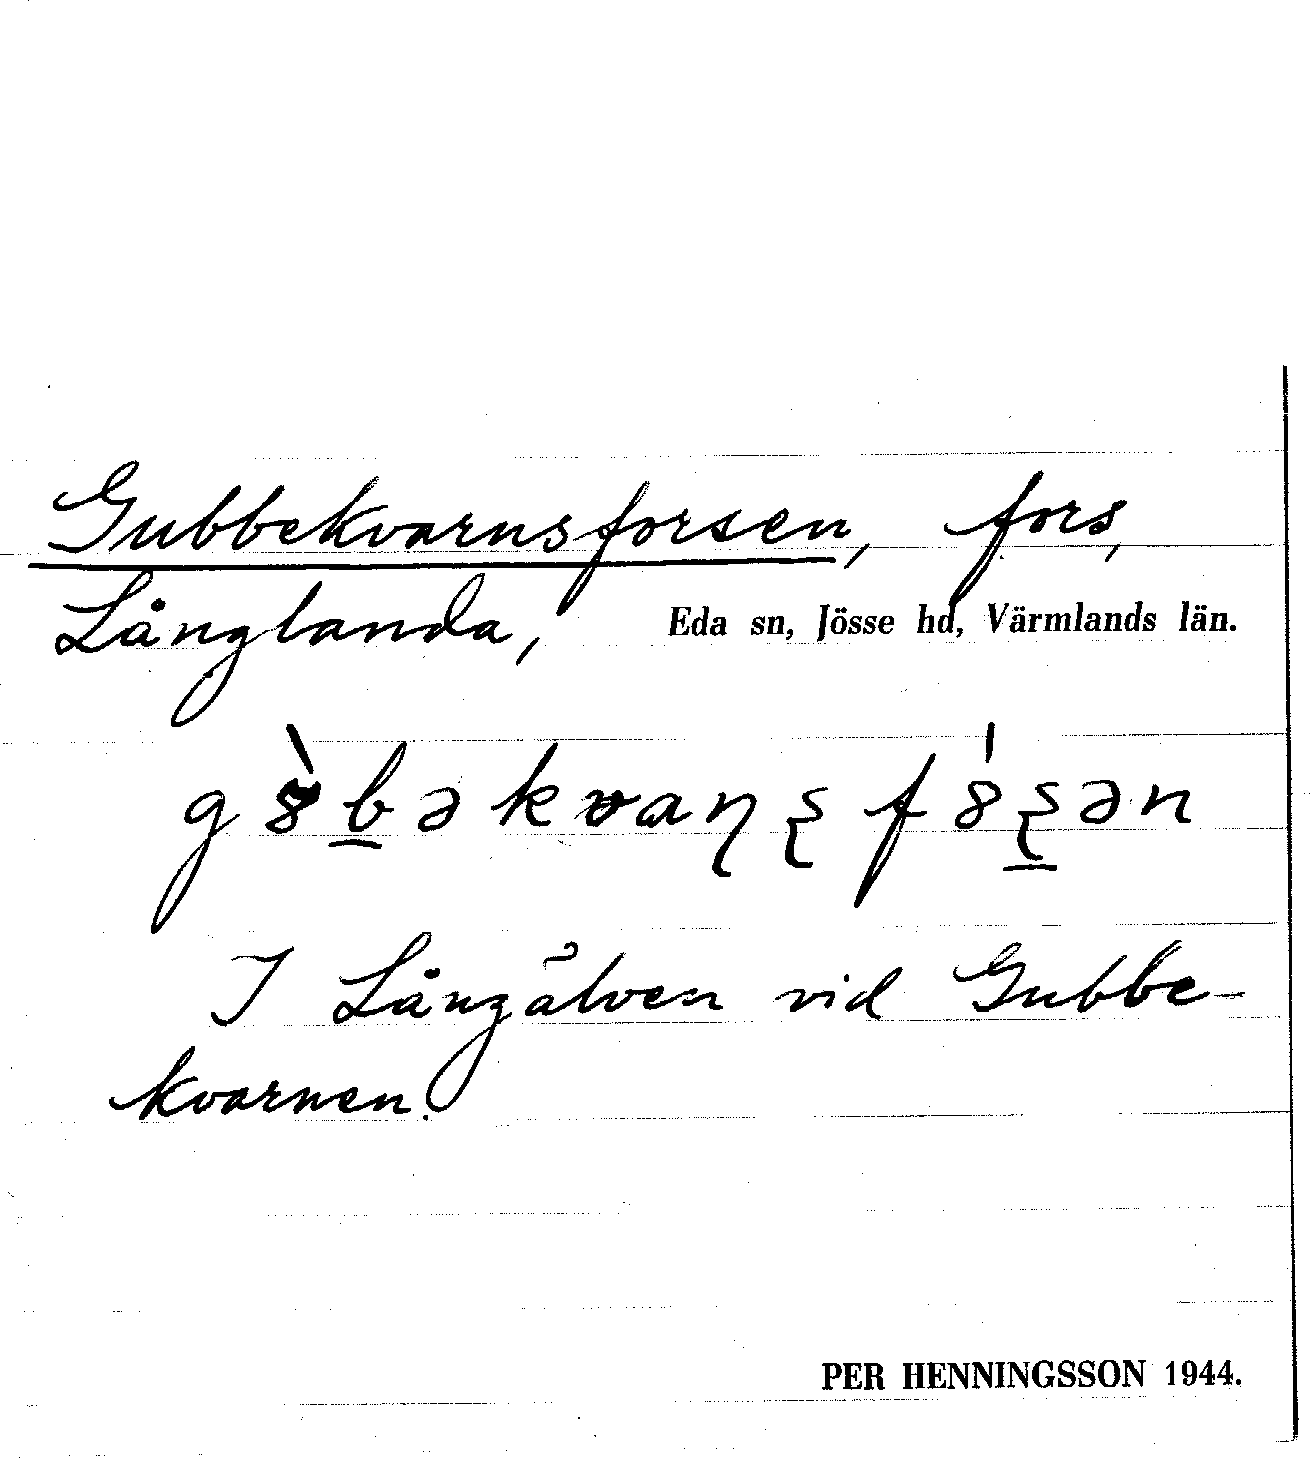 Gubbekvarnsforsen, fors,
Långlanda, Eda sn, Jösse hd, Värmlands län.
I Långälven vid Gubbe-
kvarnen.
PER HENNINGSSON 1944.